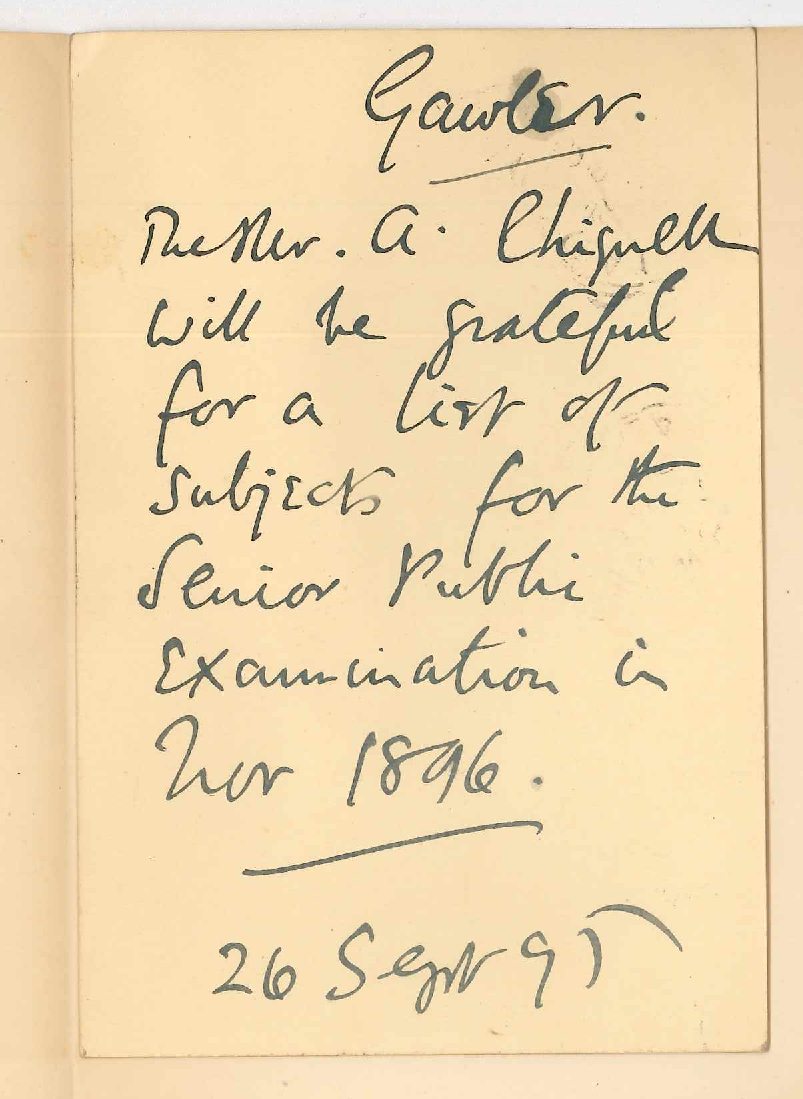 Gawler.
The Rev. A. Chignell
will be grateful
for a list of
subjects for the
Senior Public
Examination in
Nov 1896.
26 Sept 95